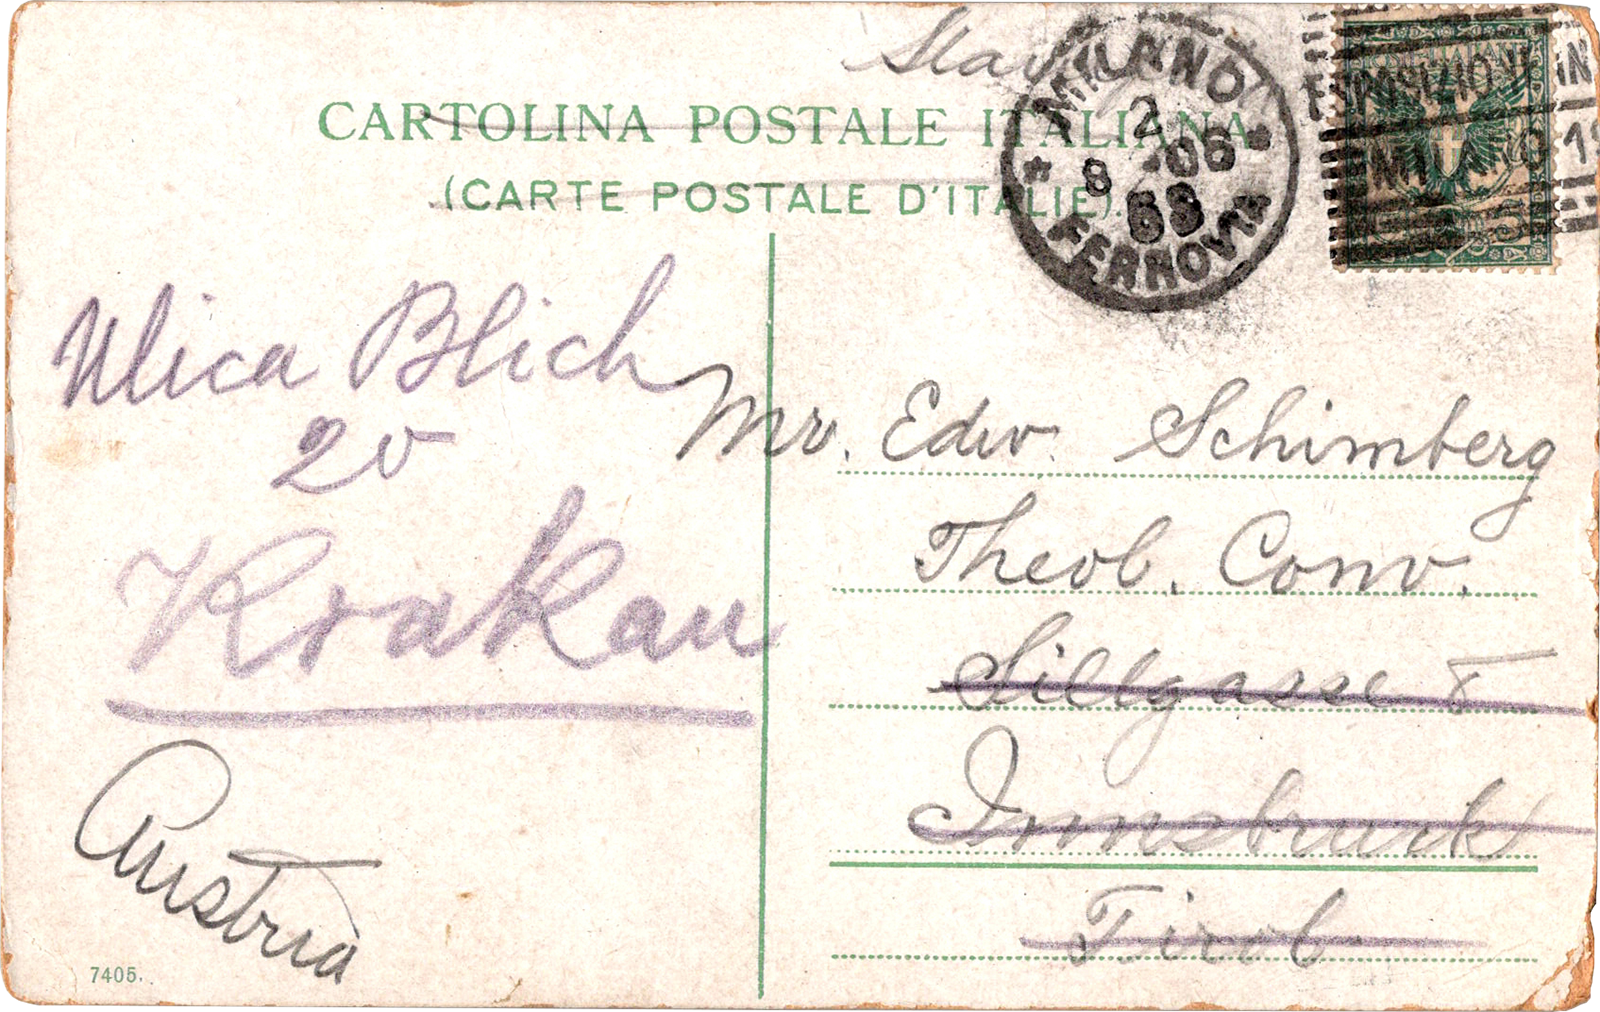 CARTOLINA POSTALE ITALIANA
(CARTE POSTALE D'ITALIE).
MILANO
2
8 -06
FERROVIA
ESPOSIZIONE IN
MILANO 19
Ulica Blich
20
Krakau
Austria
Mr. Edw. Schimberg
Theol. Conv.
Sillgasse 8
Innsbruck
Tirol
7405.